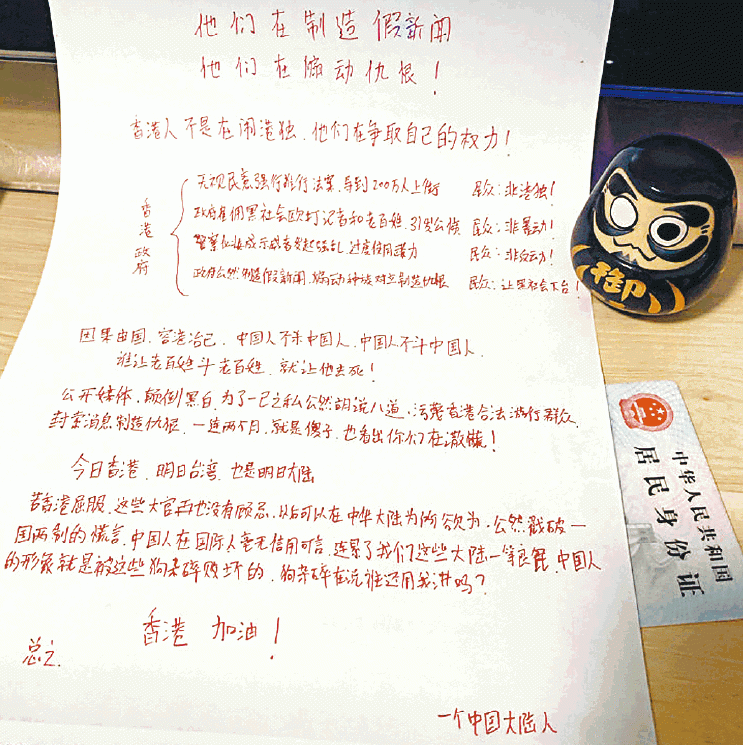 他们在制造假新闻
他们在煽动仇恨！
香港人不是在闹港独，他们在争取自己的权力！
香港政府
无视民意强行推行法案，导到200万人上街 民众：非港独！
政府雇佣黑社会欧打记者和老百姓，引发公愤 民众：非暴动！
警察伪装成示威者发起骚乱，过度使用暴力 民众：非反动！
政府公然制造假新闻，煽动种族对立制造仇恨 民众：让黑社会下台！
国，容港治己，中国人不杀中国人，中国人不斗中国人，
谁让老百姓斗老百姓，就让他去死！
公开媒体，颠倒黑白，为了一己之私公然胡说八道，污蔑香港合法游行群众，
封堵消息制造仇恨，一连两个月，就是傻子，也看出你们在撒谎！
今日香港，明日台湾，也是明日大陆
若香港屈服，这些大官再也没有顾忌，以后可以在中华大陆为所欲为，公然戳破一
国两制的谎言，中国人在国际人毫无信用可言，连累了我们这些大陆一等良民，中国人
的形象就是被这些狗杂碎败坏的，狗杂碎在说谁还用我讲吗？
香港 加油！
总之，
一个中国大陆人
御
中华人民共和国
居民身份证